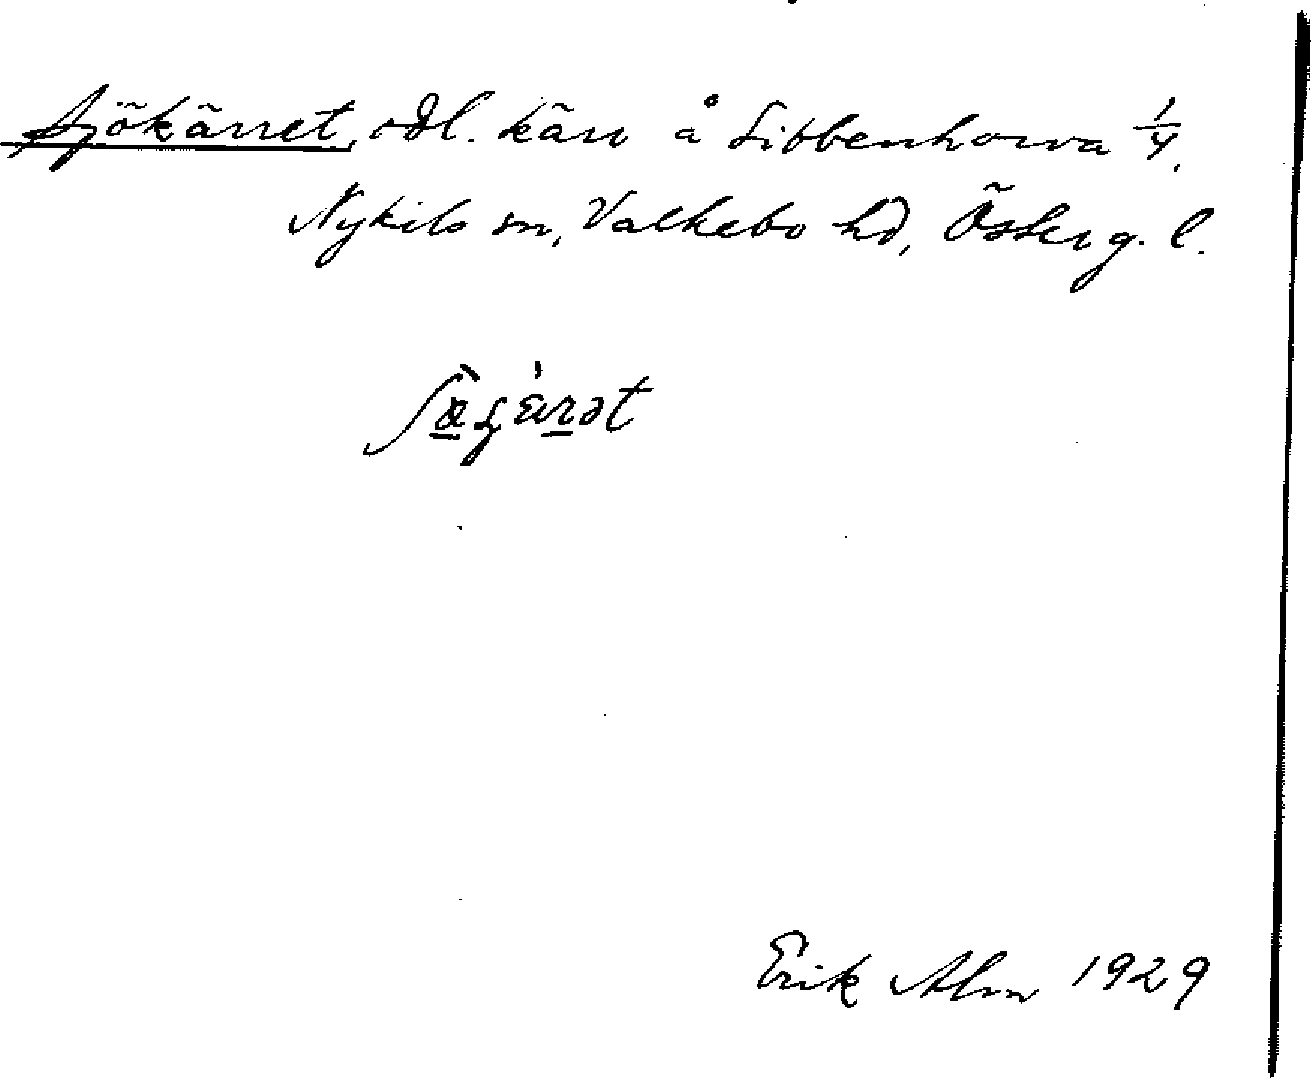 Sjökärret, odl. kärr å Sibbenhorva 1/4,
Nykils sn, Valkebo hd, Österg. l.
Erik Alm 1929